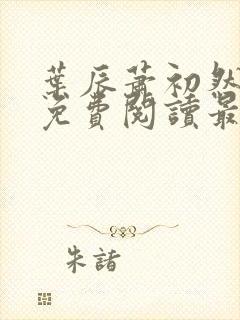 葉辰蕭初然
免費閱讀最
朱諸